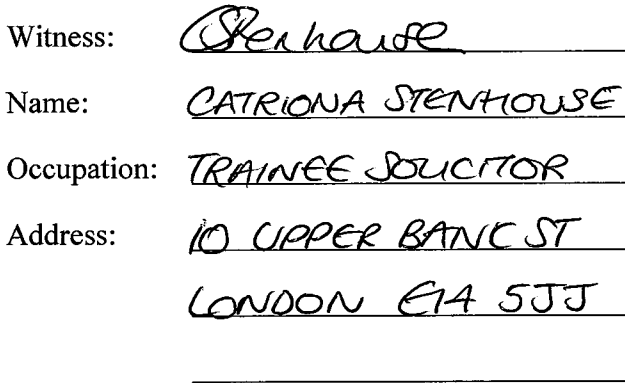 Witness: CStenhouse
Name: CATRIONA STENHOUSE
Occupation: TRAINEE SOLICITOR
Address: 10 UPPER BANK ST
LONDON E14 5JJ